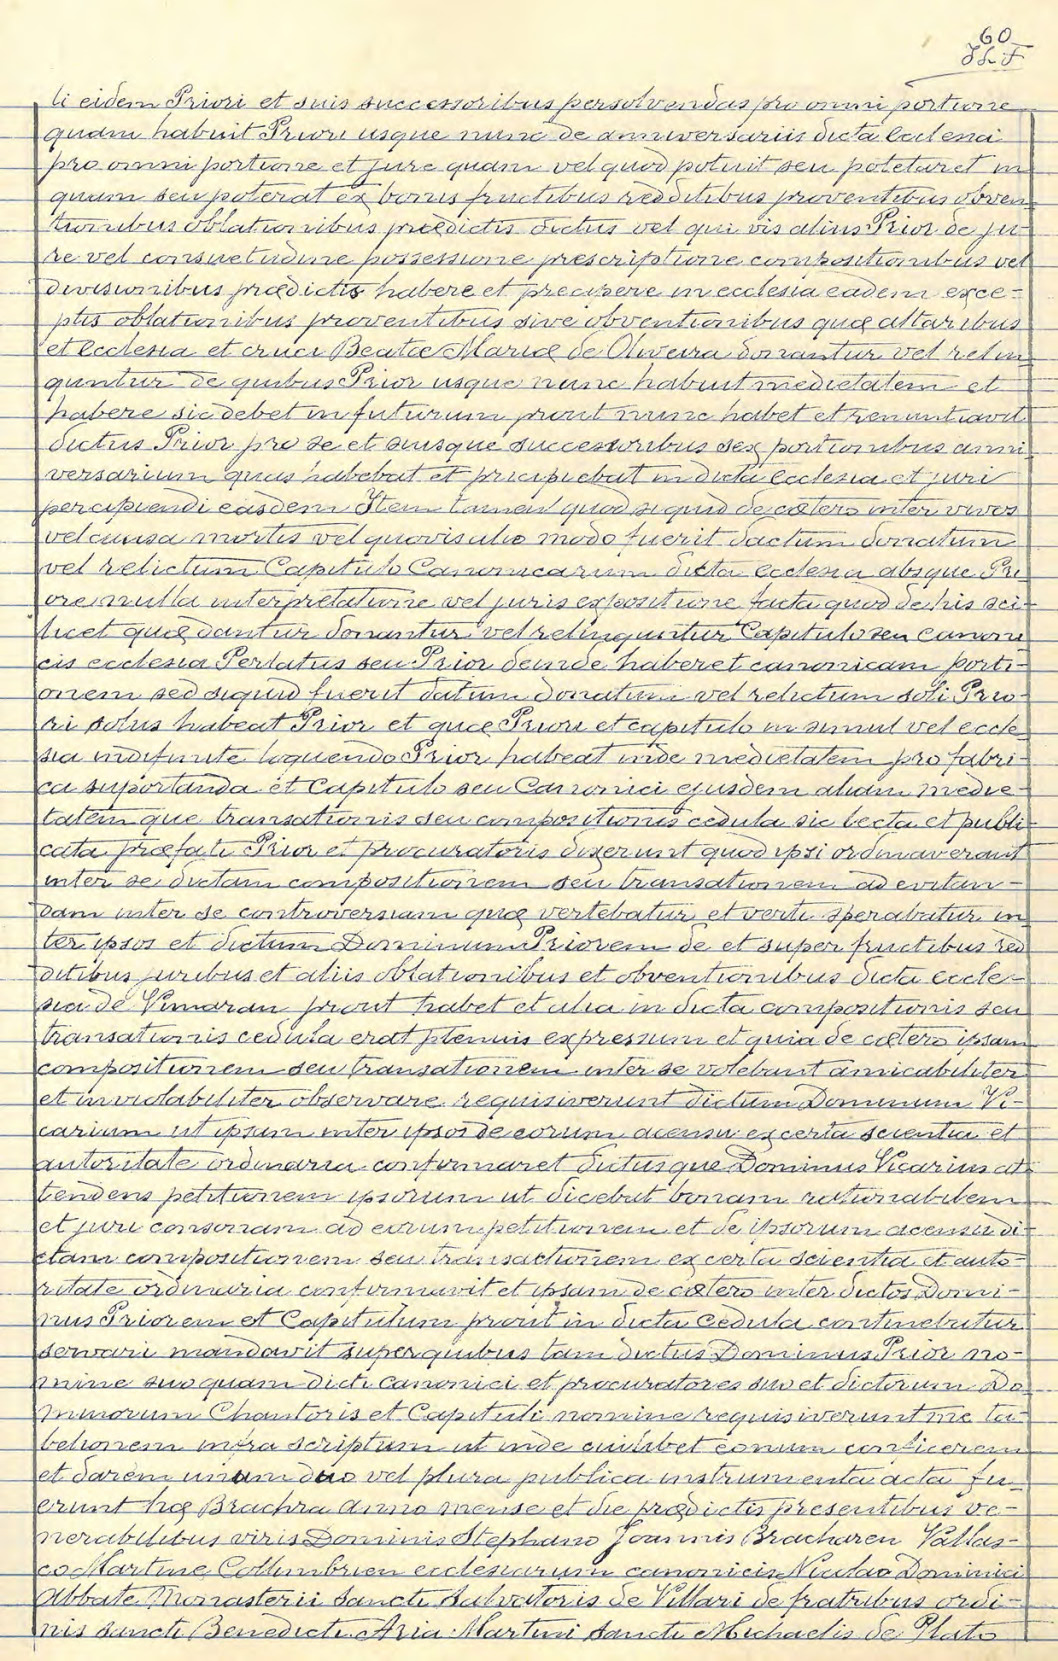 60
li eidem Priori et suis successoribus persolvendas pro omni portione
quam habuit Priori usque nunc de anniversariis dicta ecclesiæ
pro omni portione et jure quam vel quod potuit seu potetur et in
quam seu poterat ex bonis fructibus redditibus proventibus obven-
tionibus oblationibus prædictis dictus vel qui vis alius Prior de ju-
re vel consuetudine possessione prescriptione compositionibus vel
divisionibus prædictis habere et precipere in ecclesia eadem exce-
ptis oblationibus proventibus sive obventionibus quæ altaribus
et ecclesia et cruci Beatæ Mariæ de Oliveira donantur vel relin
quntur de quibus Prior usque nunc habuit medietatem et
habere sic debet in futurum prout nunc habet et renuntiavit
dictus Prior pro se et suisque successoribus sex portionibus anni
versarium quas habebat et precipiebat in dicta ecclesia et juri
percipiendi easdem Item tamen quod si quid de cætero inter vivos
vel causa mortis vel quovis alio modo fuerit dactum donatum
vel relictum Capitulo Canonicarum dicta ecclesia absque Pri
ore nulla interpretatione vel juris expositione facta quod de his sci-
licet quæ dantur donantur vel relinquntur Capitulo seu canoni
cis ecclesia Perlatus seu Prior deinde haberet canonicam porti-
onem sed siquid fuerit datum donatum vel relictum soli Prio-
ri solus habeat Prior et quæ Priori et capitulo in simul vel eccle
sia indifinite loquendo Prior habeat inde medietatem pro fabri-
ca suportanda et Capitulo seu Canonici ejusdem aliam medie-
tatem que transationis seu compositionis cedula sic lecta et publi
cata præfati Prior et procuratoris dixerunt quod ipsi ordinaverant
inter se dictam compositionem seu transationem ad evitan-
dam inter se controversiam quæ vertebatur et verti sperabatur in
ter ipsos et dictum Dominum Priorem de et super fructibus red
ditibus juribus et aliis oblationibus et obventionibus dicta eccle-
sia de Vimaran prout habet et alia in dicta compositionis seu
transationis cedula erat plenius expressum et quia de cætero ipsam
compositionem seu transationem inter se volebant amicabiliter
et inviolabiliter observare requisiverunt dictum Dominum Vi-
carium ut ipsam inter ipsos de eorum acensu ex certa scientia et
autoritate ordinaria confirmaret dictusque Dominus Vicarius at
tendens petitionem ipsorum ut dicebat bonam rationabilem
et juri consonam ad eorum petitionem et de ipsorum acensu di
ctam compositionem seu transactionem ex certa scientia et auto-
ritate ordinaria confirmavit et ipsam de cætero inter dictos Domi-
nus Priorem et Capitulum prout in dicta cedula continebatur
servari mandavit super quibus tam dictus Dominus Prior no-
mine suo quam dicti canonici et procuratores suo et dictorum Do
minorum Chantoris et Capituli nomine requisiverunt me ta-
belionem infra scriptum ut inde cuilibet eorum conficerem
et darem unum duo vel plura publica instrumenta acta fu
erunt hæ Brachra anno mense et die prædictis presentibus ve-
nerabilibus viris Dominis Stephano Joannis Bracharen Vallas-
co Martine Collimbrien ecclesiarum canonicis Nicolao Dominici
Abbate Monasterii sancti Salvatoris de Villari de fratribus ordi-
nis sancti Benedicti Aria Martini sancti Michaelis de Plato